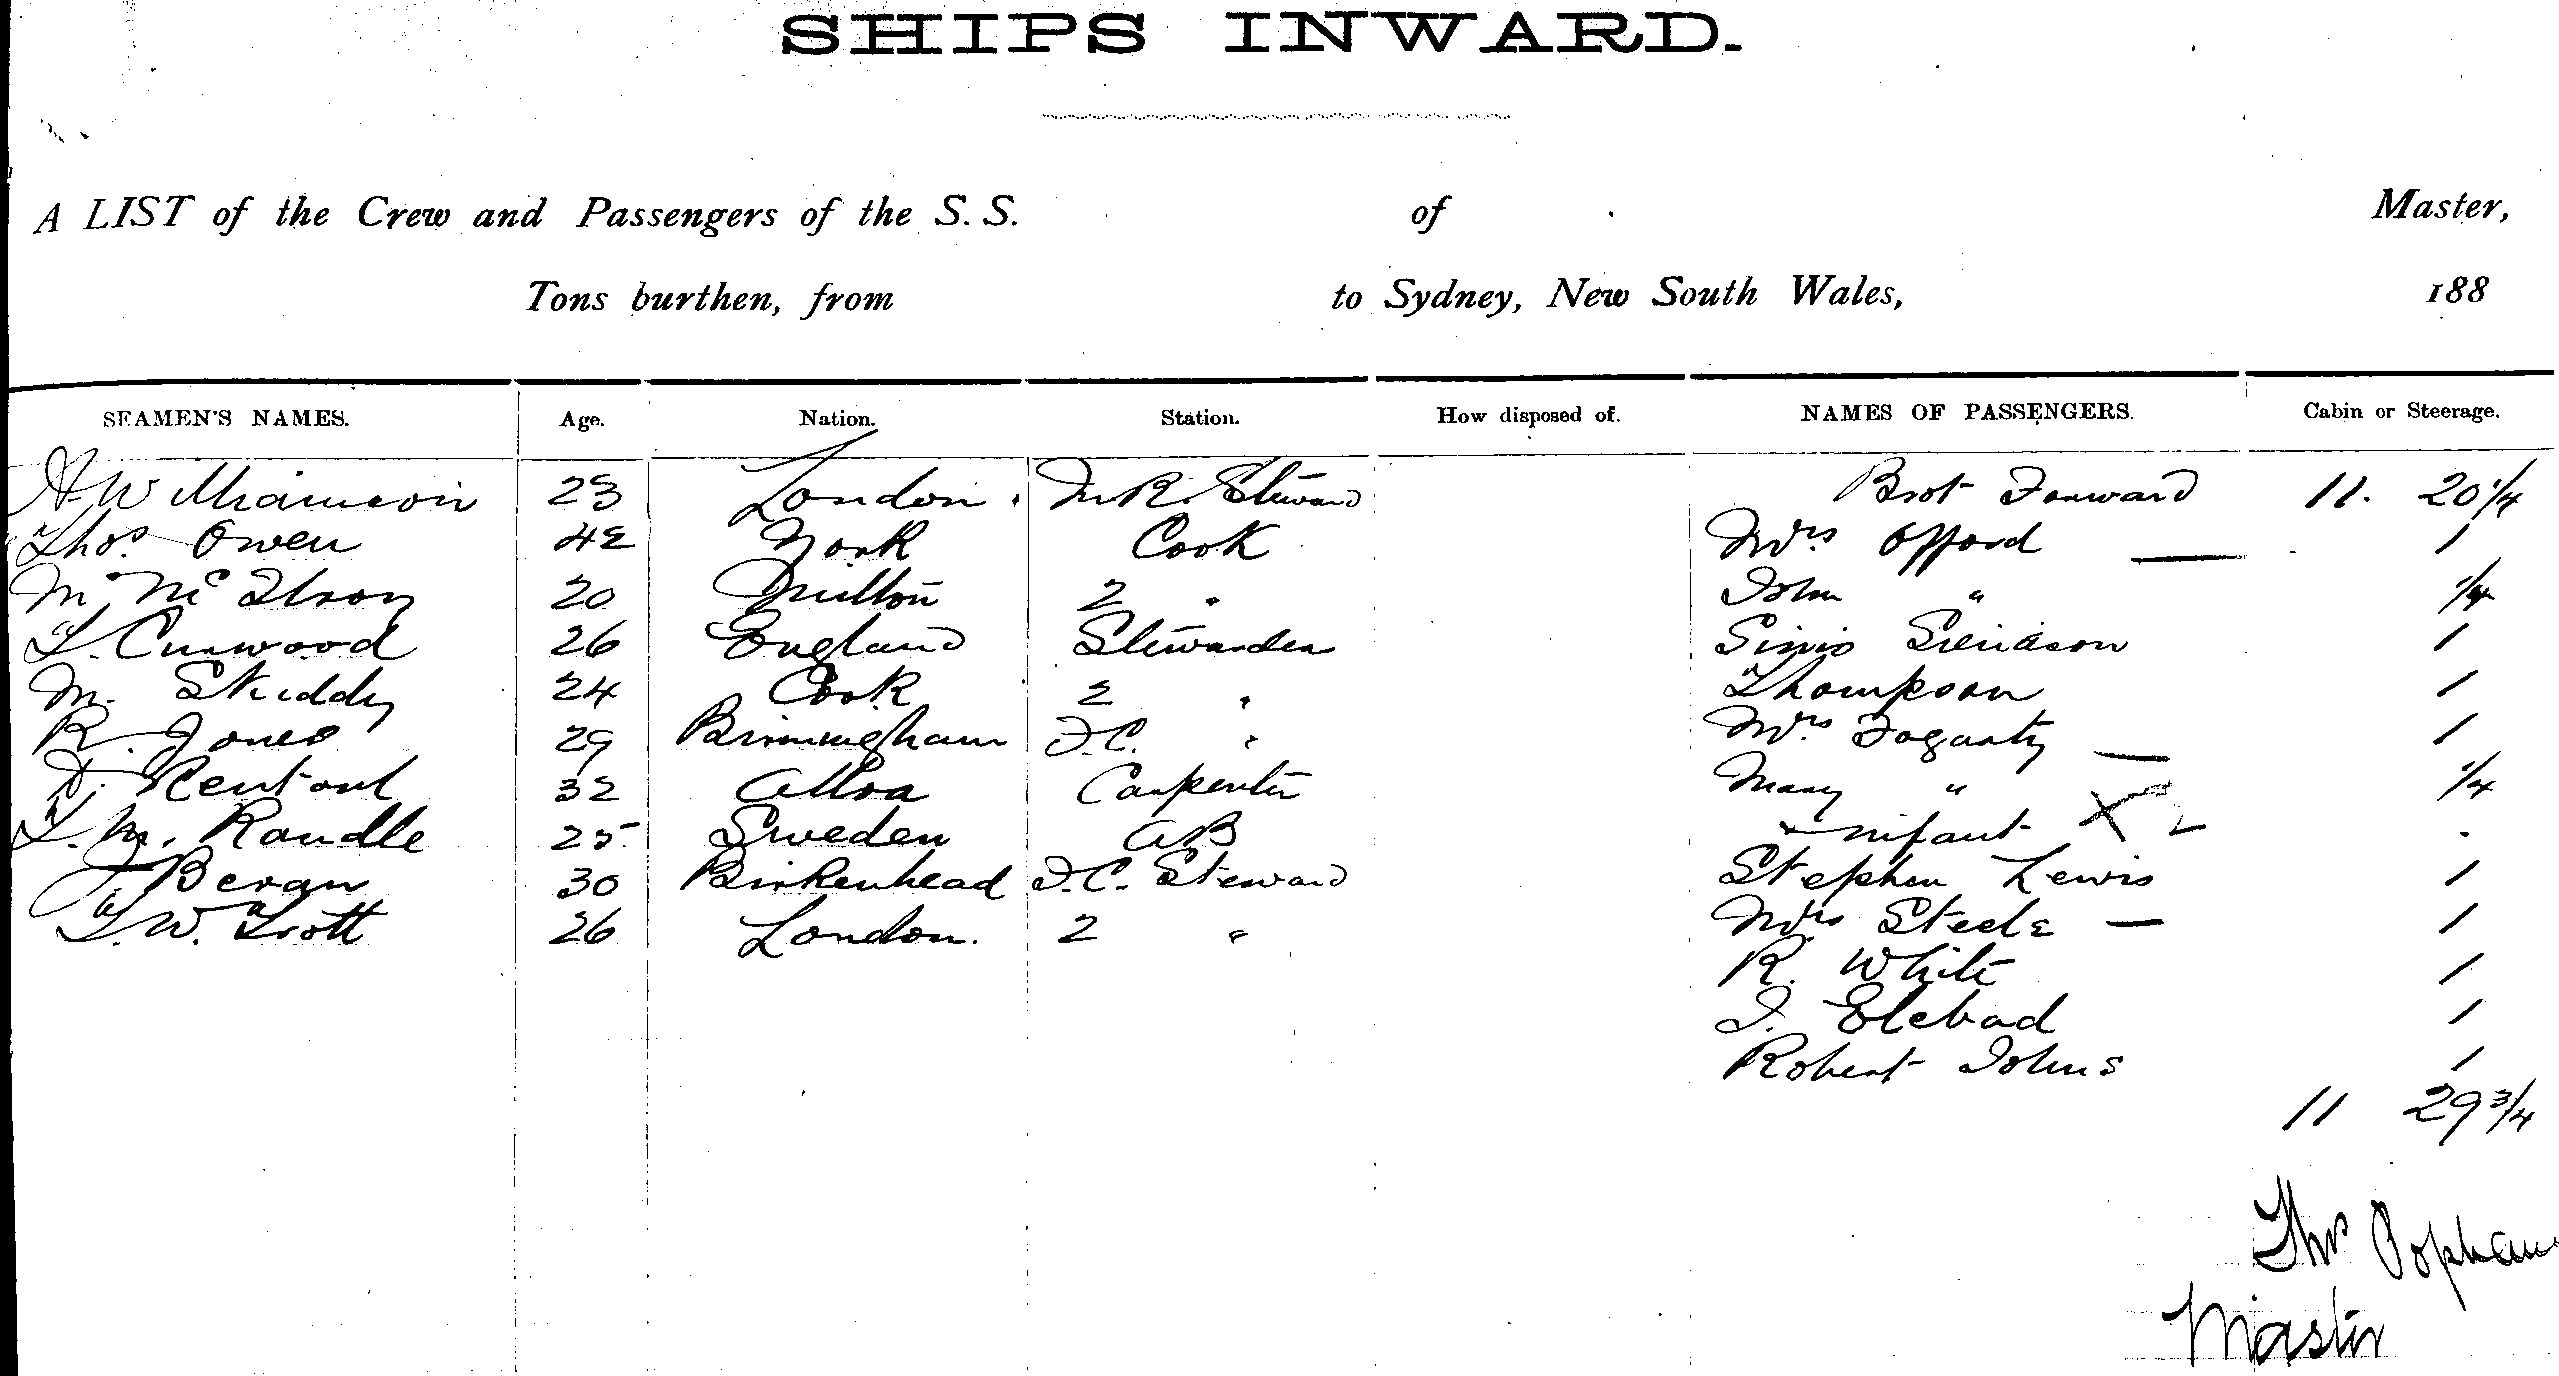 SHIPS INWARD.
A LIST of the Crew and Passengers of the S. S. of Master,
Tons burthen, from to Sydney, New South Wales, 188
SEAMEN'S NAMES. Age. Nation. Station. How disposed of. NAMES OF PASSENGERS. Cabin or Steerage.
A. Williamson 23 London. M R Steward Brot Forward 11. 20 1/4
Thos. Owen 42 York Cook Mrs Offord — 1
M Mc 20 Milton 2 " John " 1/4
L. Curwood 26 England Stewardess 1
M. Skiddy 24 Cork 2 " Thompson 1
R. Jones 29 Birmingham F.C. " Mrs Fogarty — 1
D. Rentoul 32 Alloa Carpenter Mary " 1/4
L. M. Randle 25 Sweden AB infant X 2 .
J Bevan 30 Birkenhead F.C. Steward Stephen Lewis 1
T. W. Trott 26 London. 2 " Mrs Steele — 1
R. White 1
J. Elebad 1
Robert Johns 1
11 29 3/4
Thos Popham
Master